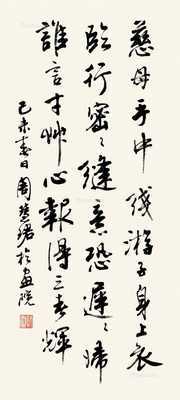 慈母手中线游子身上衣
临行密〻缝意恐遲〻歸
誰言寸艸心報得三春輝
己未春日周慧珺於画院